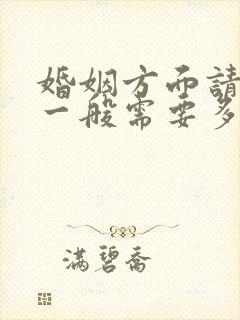 婚姻方面請
一般需要多
满碧喬